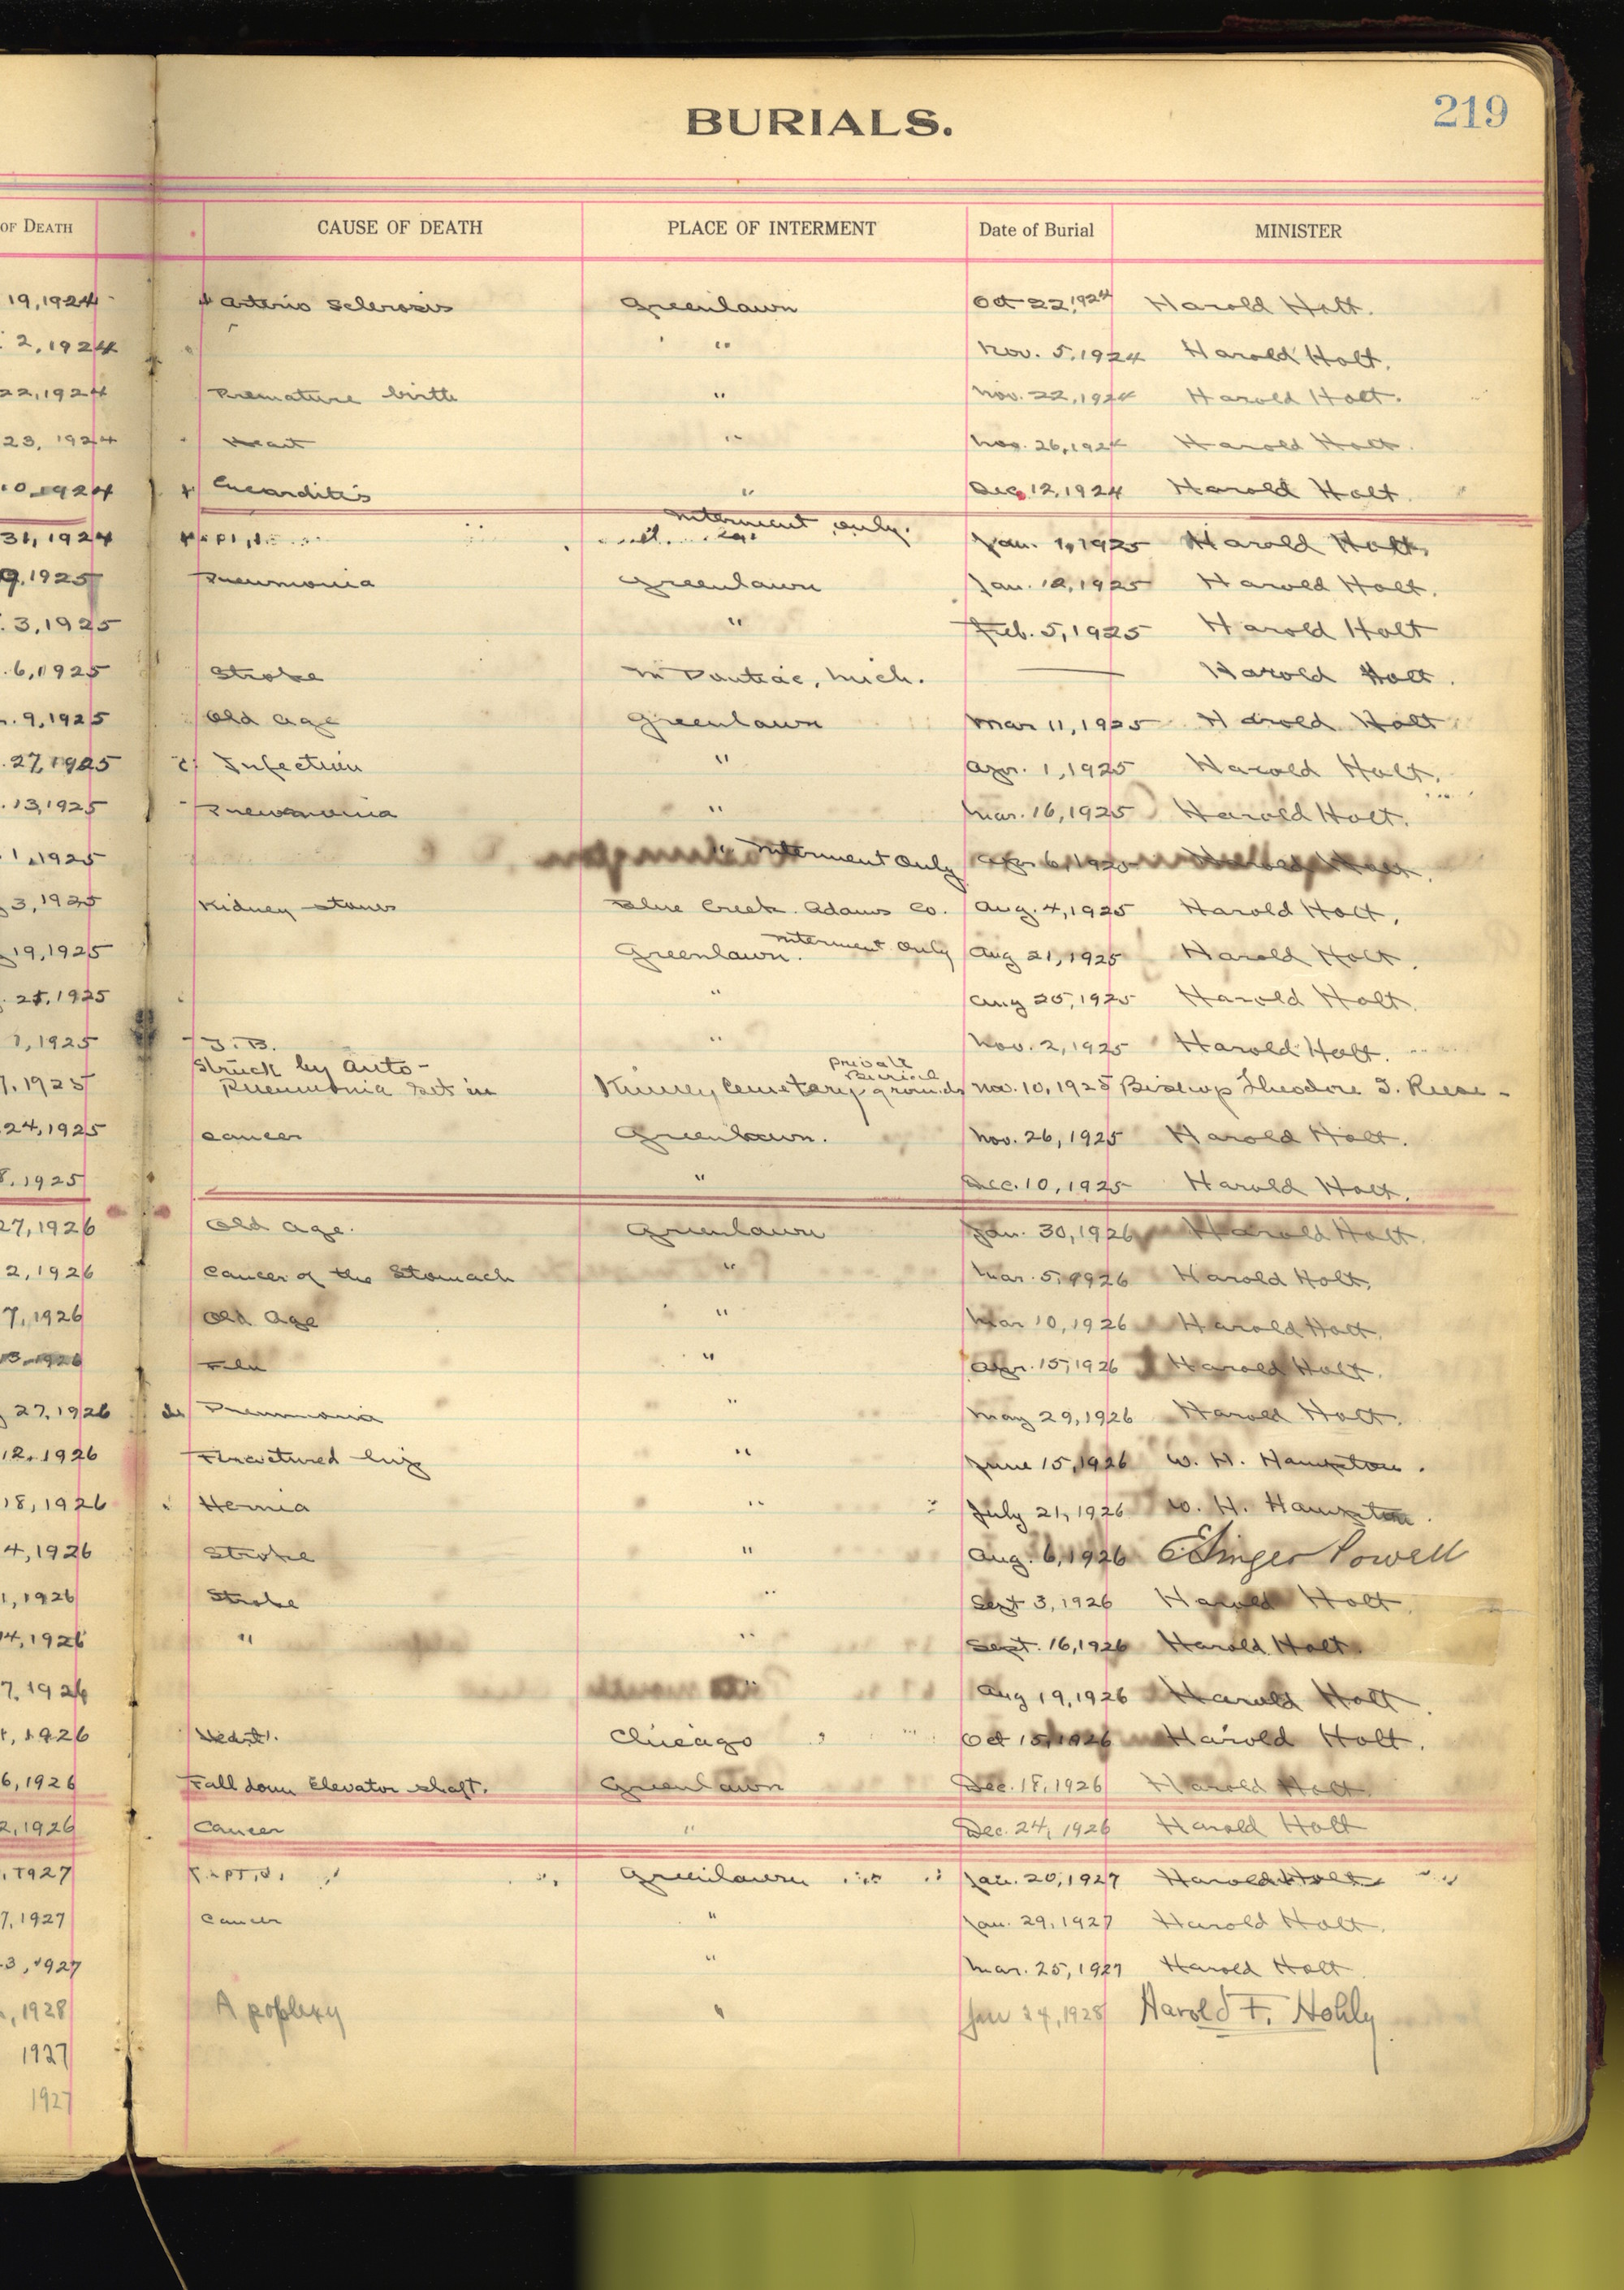 BURIALS.
219
OF DEATH CAUSE OF DEATH PLACE OF INTERMENT Date of Burial MINISTER
19,1924 Arterio Sclerosis Greenlawn Oct 22,1924 Harold Holt.
2,1924 " Nov. 5,1924 Harold Holt.
22,1924 Premature birth " Nov. 22,1924 Harold Holt.
23, 1924 Heart " Nov. 26,1924 Harold Holt.
0,1924 " Dec. 12,1924 Harold Holt
31, 1924 Interment only. Jan. 1,1925 Harold Holt.
9,1925 Pneumonia Greenlawn Jan. 12,1925 Harold Holt.
3,1925 " Feb. 5,1925 Harold Holt
6,1925 Stroke in Pontiac, Mich. — Harold Holt.
9,1925 Old age Greenlawn Mar 11,1925 Harold Holt
27,1925 Infection " Apr. 1,1925 Harold Holt.
13,1925 Pneumonia " Mar. 16,1925 Harold Holt.
1,1925 " Interment only Apr 6,1925 Harold Holt.
3,1925 Kidney stones Blue Creek. Adams Co. Aug. 4,1925 Harold Holt.
19,1925 Greenlawn. Interment only Aug 21,1925 Harold Holt.
25,1925 " Aug 25,1925 Harold Holt.
1,1925 T.B. " Nov. 2,1925 Harold Holt.
Struck by Auto-
7,1925 Pneumonia set in Kinney Cemetery private burial grounds Nov. 10,1925 Bishop Theodore I. Reese-
24,1925 Cancer Greenlawn. Nov. 26,1925 Harold Holt.
8,1925 " Dec. 10,1925 Harold Holt.
27,1926 Old age. Greenlawn Jan. 30,1926 Harold Holt.
2,1926 Cancer of the Stomach " Mar. 5,1926 Harold Holt.
7,1926 Old Age " Mar 10,1926 Harold Holt.
13,1926 Flu " Apr. 15,1926 Harold Holt.
27,1926 Pneumonia " May 29,1926 Harold Holt.
12,1926 Fractured hip " June 15,1926 W. H. Hampton.
18,1926 Hernia " July 21,1926 W. H. Hampton.
4,1926 Stroke " Aug. 6,1926 E Ainger Powell
1,1926 Stroke " Sept 3,1926 Harold Holt.
14,1926 " " Sept. 16,1926 Harold Holt.
7,1926 " Aug 19,1926 Harold Holt.
1926 Heart. Chicago Oct 15,1926 Harold Holt.
6,1926 Fall down Elevator shaft. Greenlawn Dec. 18,1926 Harold Holt.
2,1926 Cancer " Dec. 24, 1926 Harold Holt
1927 Greenlawn Jan. 20,1927 Harold Holt
7,1927 Cancer " Jan. 29,1927 Harold Holt.
3,1927 " Mar. 25,1927 Harold Holt.
1928 Apoplexy " Jan 24,1928 Harold F. Hohly
1927
1927